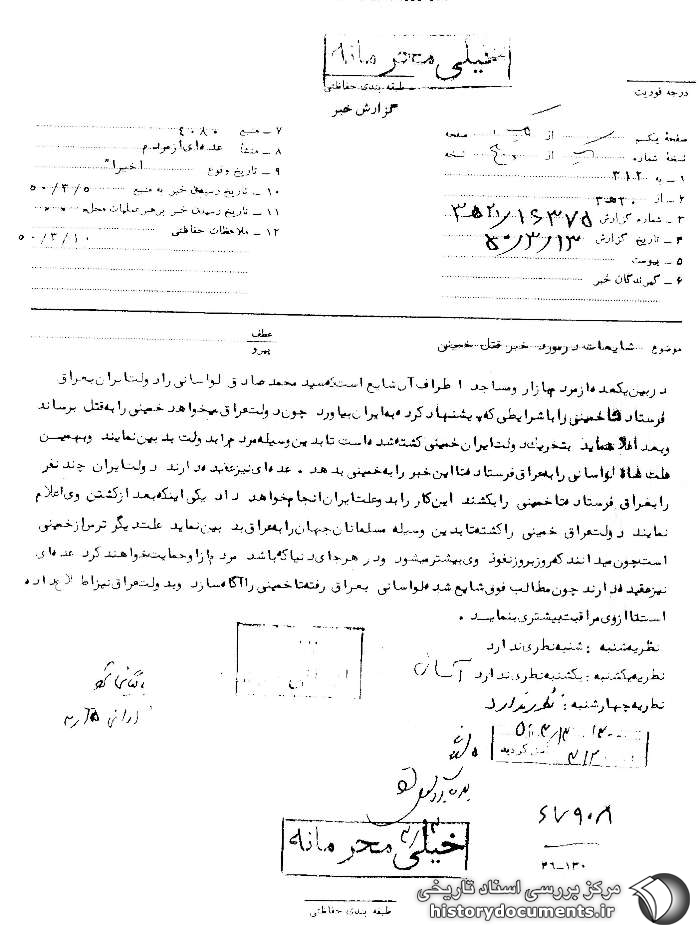 خیلی محرمانه
طبقه بندی حفاظتی
درجه فوریت
گزارش خبر
صفحه یکم از یک صفحه
نسخه شماره یک از پنج نسخه
۱ - به ۳۱۲
۲ - از ۲۰ه۳
۳ - شماره گزارش ۲۰ه۳/۱۶۳۷۵
۴ - تاریخ گزارش ۵۰/۳/۱۳
۵ - پیوست
۶ - گیرندگان خبر
۷ - منبع ۴۰۸۰
۸ - منشأ عده‌ای از مردم
۹ - تاریخ وقوع اخیرا"
۱۰ - تاریخ رسیدن خبر به منبع ۵۰/۳/۵
۱۱ - تاریخ رسیدن خبر برهبر عملیات محل
۱۲ - ملاحظات حفاظتی ۵۰/۳/۱۰
موضوع شایعات در مورد خبر قتل خمینی
عطف
پیرو
در بین یکعده از مردم بازار و مساجد اطراف آن شایع است که سید محمد صادق لواسانی را دولت ایران به عراق
فرستاده تا خمینی را با شرایطی که پیشنهاد کرده به ایران بیاورد چون دولت عراق میخواهد خمینی را به قتل برساند
و بعد اعلام نماید بتحریک دولت ایران خمینی کشته شده است تا بدین وسیله مردم را بدولت بدبین نمایند و بهمین
علت شاه لواسانی را به عراق فرستاده تا این خبر را به خمینی بدهد . عده‌ای نیز عقیده دارند دولت ایران چند نفر
را به عراق فرستاده تا خمینی را بکشند این کار را بدو علت ایران انجام خواهد داد یکی اینکه بعد از کشتن وی اعلام
نمایند دولت عراق خمینی را کشته تا بدین وسیله مسلمانان جهان را به عراق بدبین نماید علت دیگر ترس از خمینی
است چون میدانند که روز بروز نفوذ وی بیشتر میشود و در هر جای دنیا که باشد مردم از او حمایت خواهند کرد عده‌ای
نیز عقیده دارند چون مطالب فوق شایع شده لواسانی به عراق رفته تا خمینی را آگاه سازد و بدولت عراق نیز اطلاع داده
است تا از وی مراقبت بیشتری بنماید .
نظریه شنبه : شنبه نظری ندارد
نظریه یکشنبه : یکشنبه نظری ندارد آسان
نظریه چهارشنبه : نظری ندارد
بایگانی شود
۶۷۹۰۸
۳۶-۱۳۰
خیلی محرمانه
طبقه بندی حفاظتی
مرکز بررسی اسناد تاریخی
historydocuments.ir